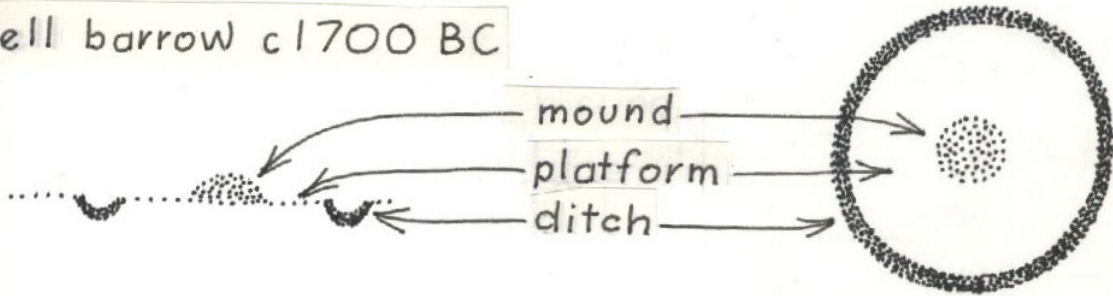 ell barrow c1700 BC
mound
platform
ditch